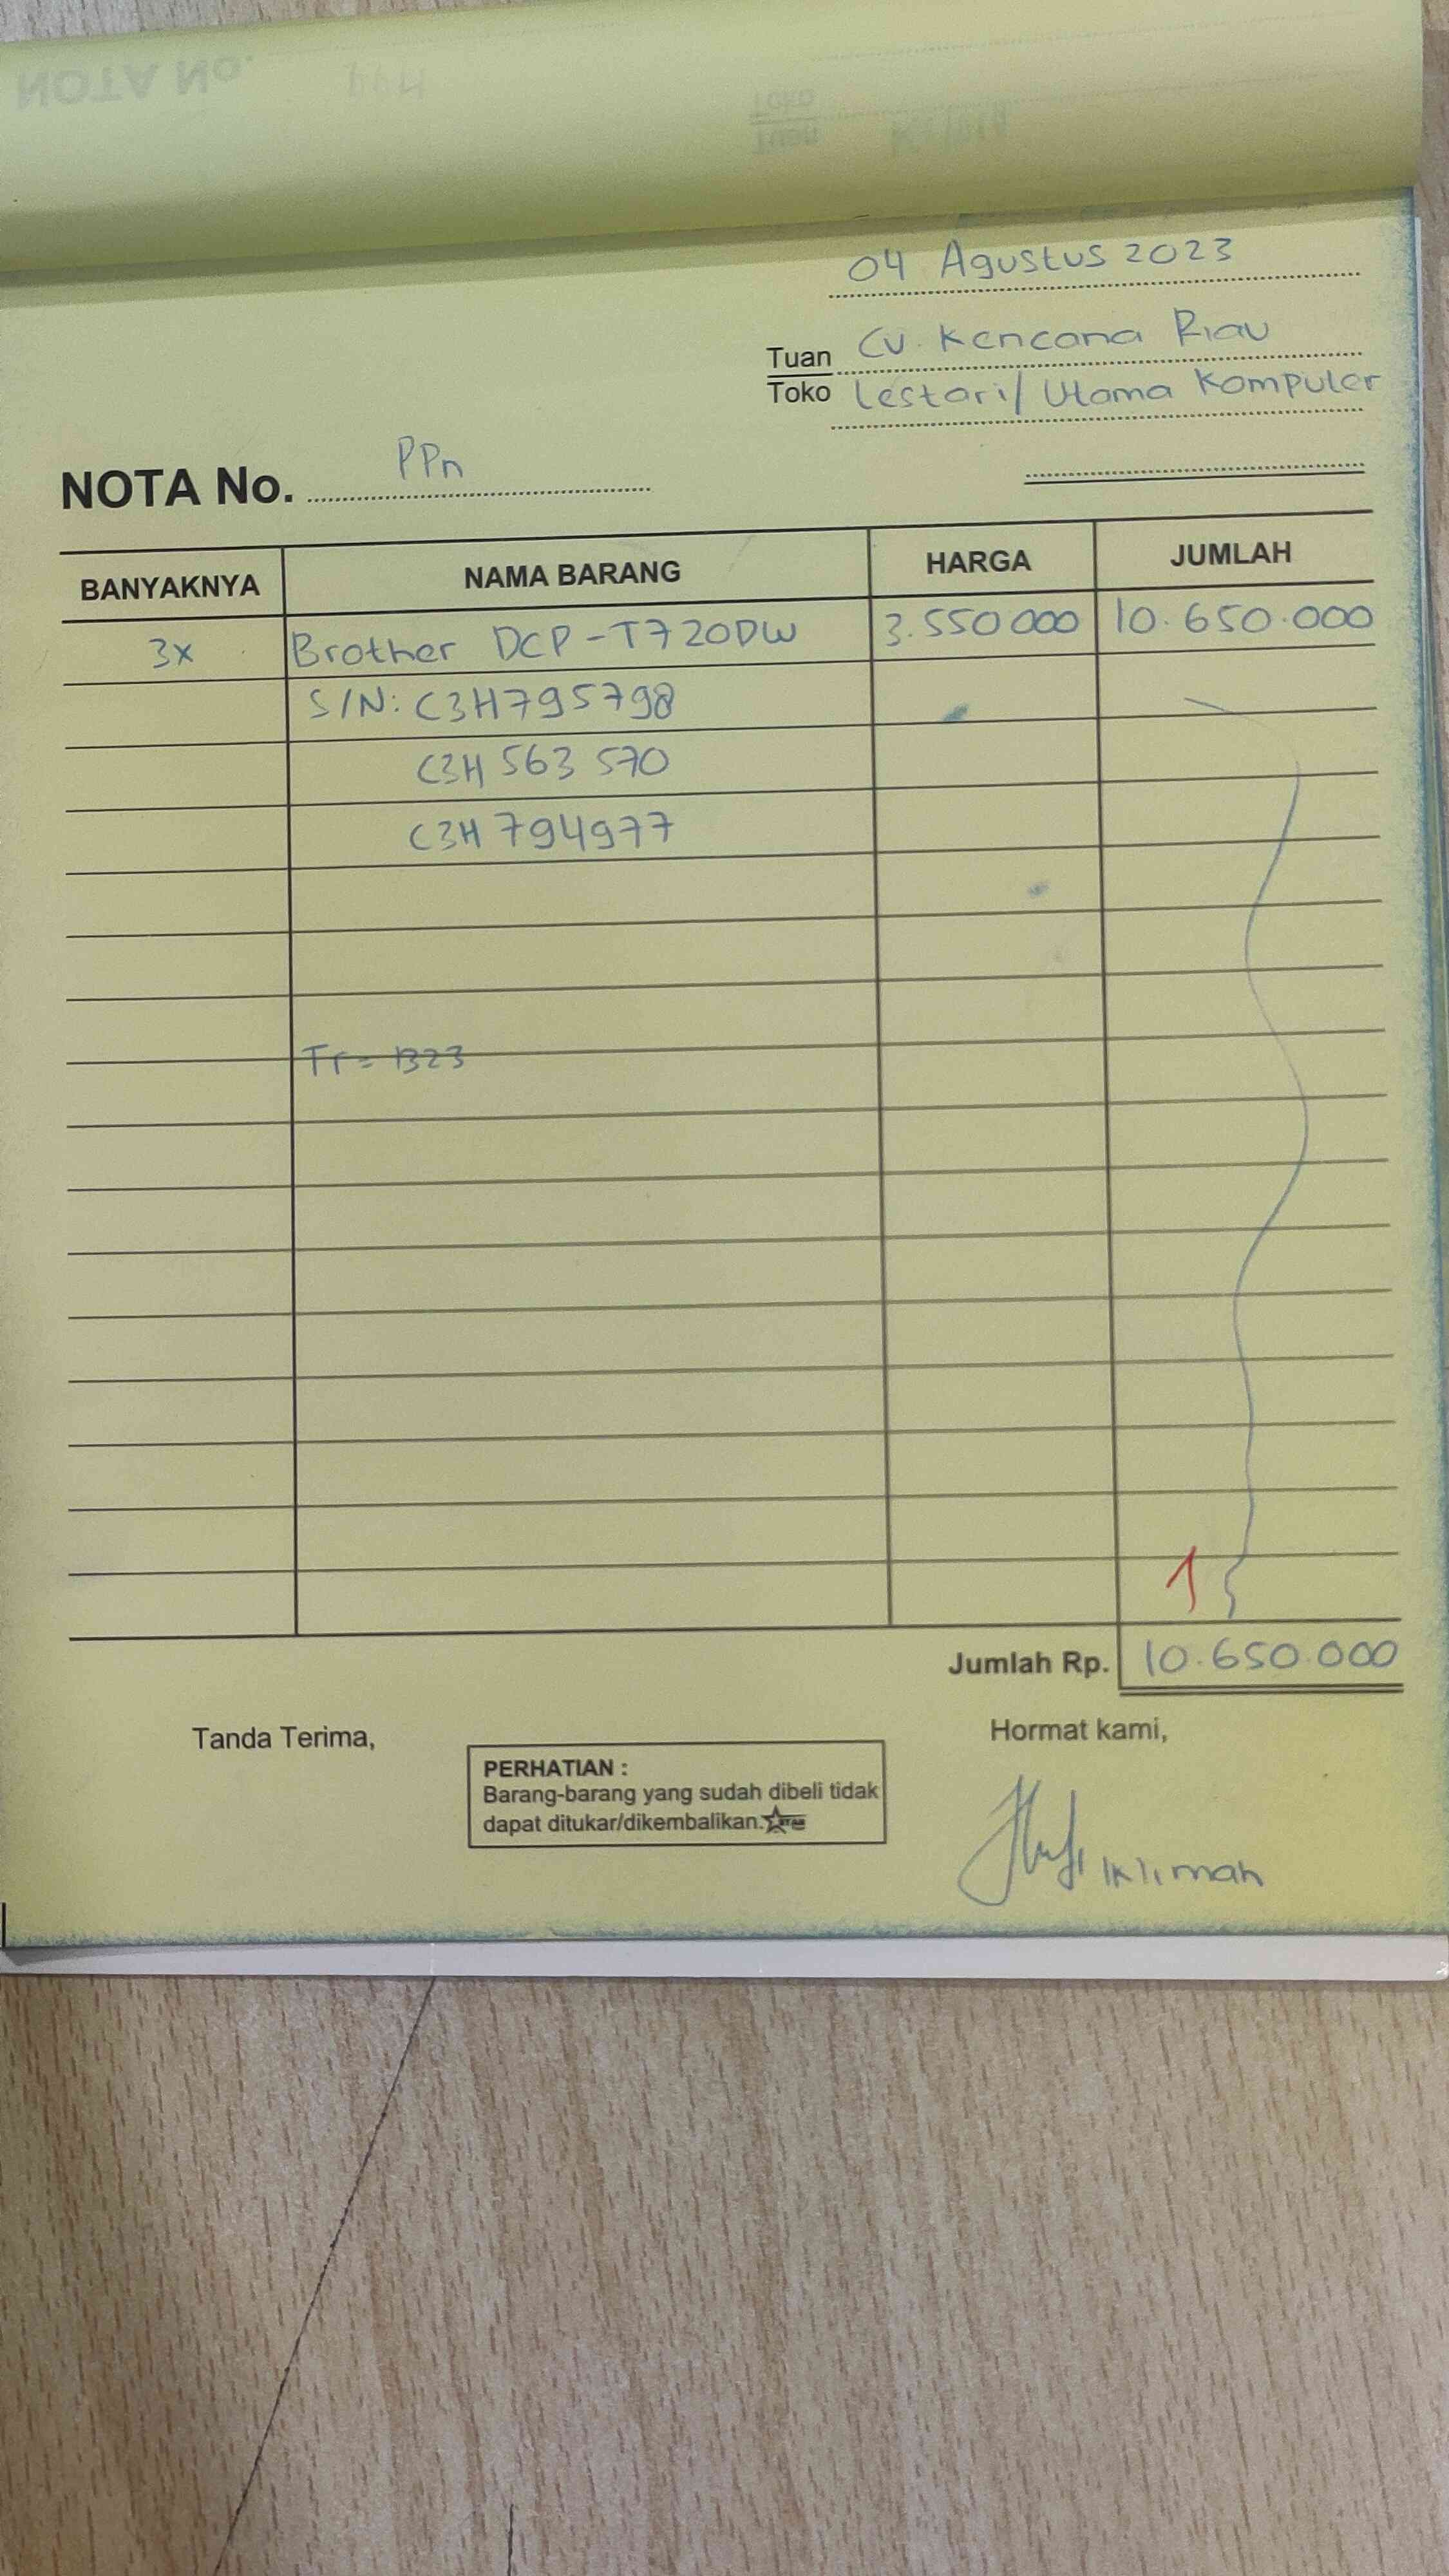 04 Agustus 2023
Tuan CV. Kencana Riau
Toko Lestari/ Utama Komputer
NOTA No. PPn
BANYAKNYA NAMA BARANG HARGA JUMLAH
3x Brother DCP-T720DW 3.550000 10.650.000
S/N: C3H795798
C3H 563 570
C3H 794977
Tr= 1323
1
Jumlah Rp. 10.650.000
Tanda Terima,
Hormat kami,
PERHATIAN :
Barang-barang yang sudah dibeli tidak
dapat ditukar/dikembalikan.
Iklimah